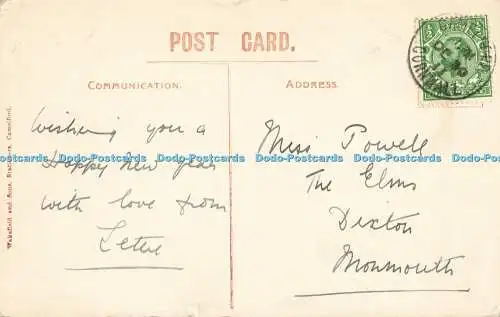 POST CARD.
COMMUNICATION.
ADDRESS.
Wishing you a
Happy New Year
with love from
Miss Powell
The Elms
Dixton
Monmouth
Wakefield and Sons, Stationers, Camelford.
Dodo-Postcards Dodo-Postcards Dodo-Postcards Dodo-Postcards Dodo-Postcards